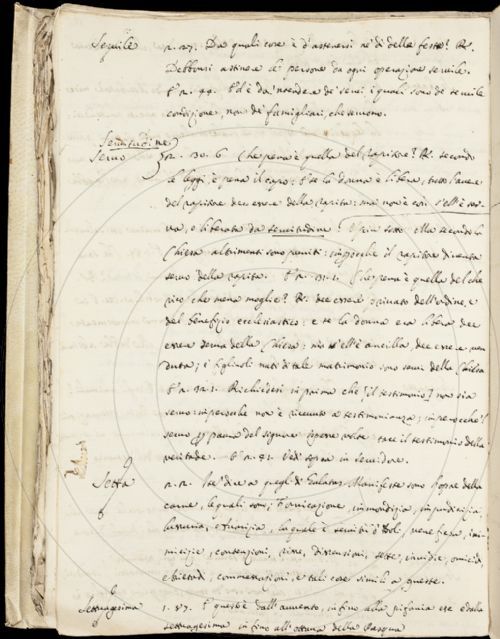 Servile n. 27. Da quali cose è d'astenersi ne' dì delle feste? R.
Debbonsi astinere le persone da ogni operazione servile.
E n. 49. El è da' intendere de' servi i quali sono de servile
condizione, non de' famigliari, che servono.
Servitudine
Servo n. 30. 6. Che pena è quella del rapitore? R. secondo
le leggi, è pena il capo: E se la donna è libera, tutto l'avere
del rapitore dee essere della rapita: ma non è così s'ell'è ser-
va, o liberata da servitudine? E più sotto. Ma secondo la
Chiesa altrimenti sono puniti: impocchè il rapitore diventa
servo della rapita. E n. 31. 1. Che pena è quella del che
rico che mena moglie? R. dee essere privato dell'ordine, e
del benefizio ecclesiastico: e se la donna era libera dee
essere serva della Chiesa: ma s'ell'è ancilla, dee essere ven
duta; i figliuoli nati di tale matrimonio sono servi della Chiesa
E n. 32. 1. Richiedesi in prima che [il testimonio] non sia
servo: imperocchè non è ricevuto a testimonianza; imperocchè 'l
servo per paura del signore spesse volte tace il testimonio della
veritade. E n. 81. Vedi sopra in servidore.
Setta n. 2. dice a quegli di Galatas. Manifeste sono l'opere della
carne, le quali sono; Fornicazione, immondizia, impudicizia,
lussuria, avarizia, la quale è servitù d'Idoli, veneficia, ini-
micizie, contenzioni, risse, dissensioni, sette, invidie, omicidj,
ebrietadi, commessazioni, e tali cose simili a queste.
Settuagesima 1. 87. E questo è dall'avvento, infino alla pifania ec. e dalla
settuagesima infino all'ottava della Pasqua